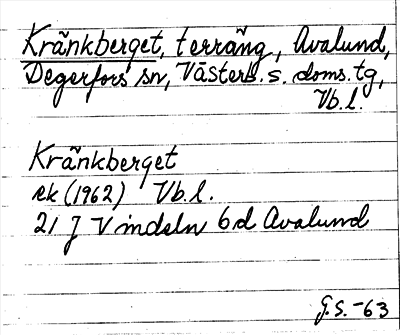 Kränkberget, terräng, Avalund,
Degerfors sn, Västerb. s. doms. tg,
Vb. l.
Kränkberget
ek (1962) Vb. l.
21 J Vindeln 6d Avalund
G. S. -63